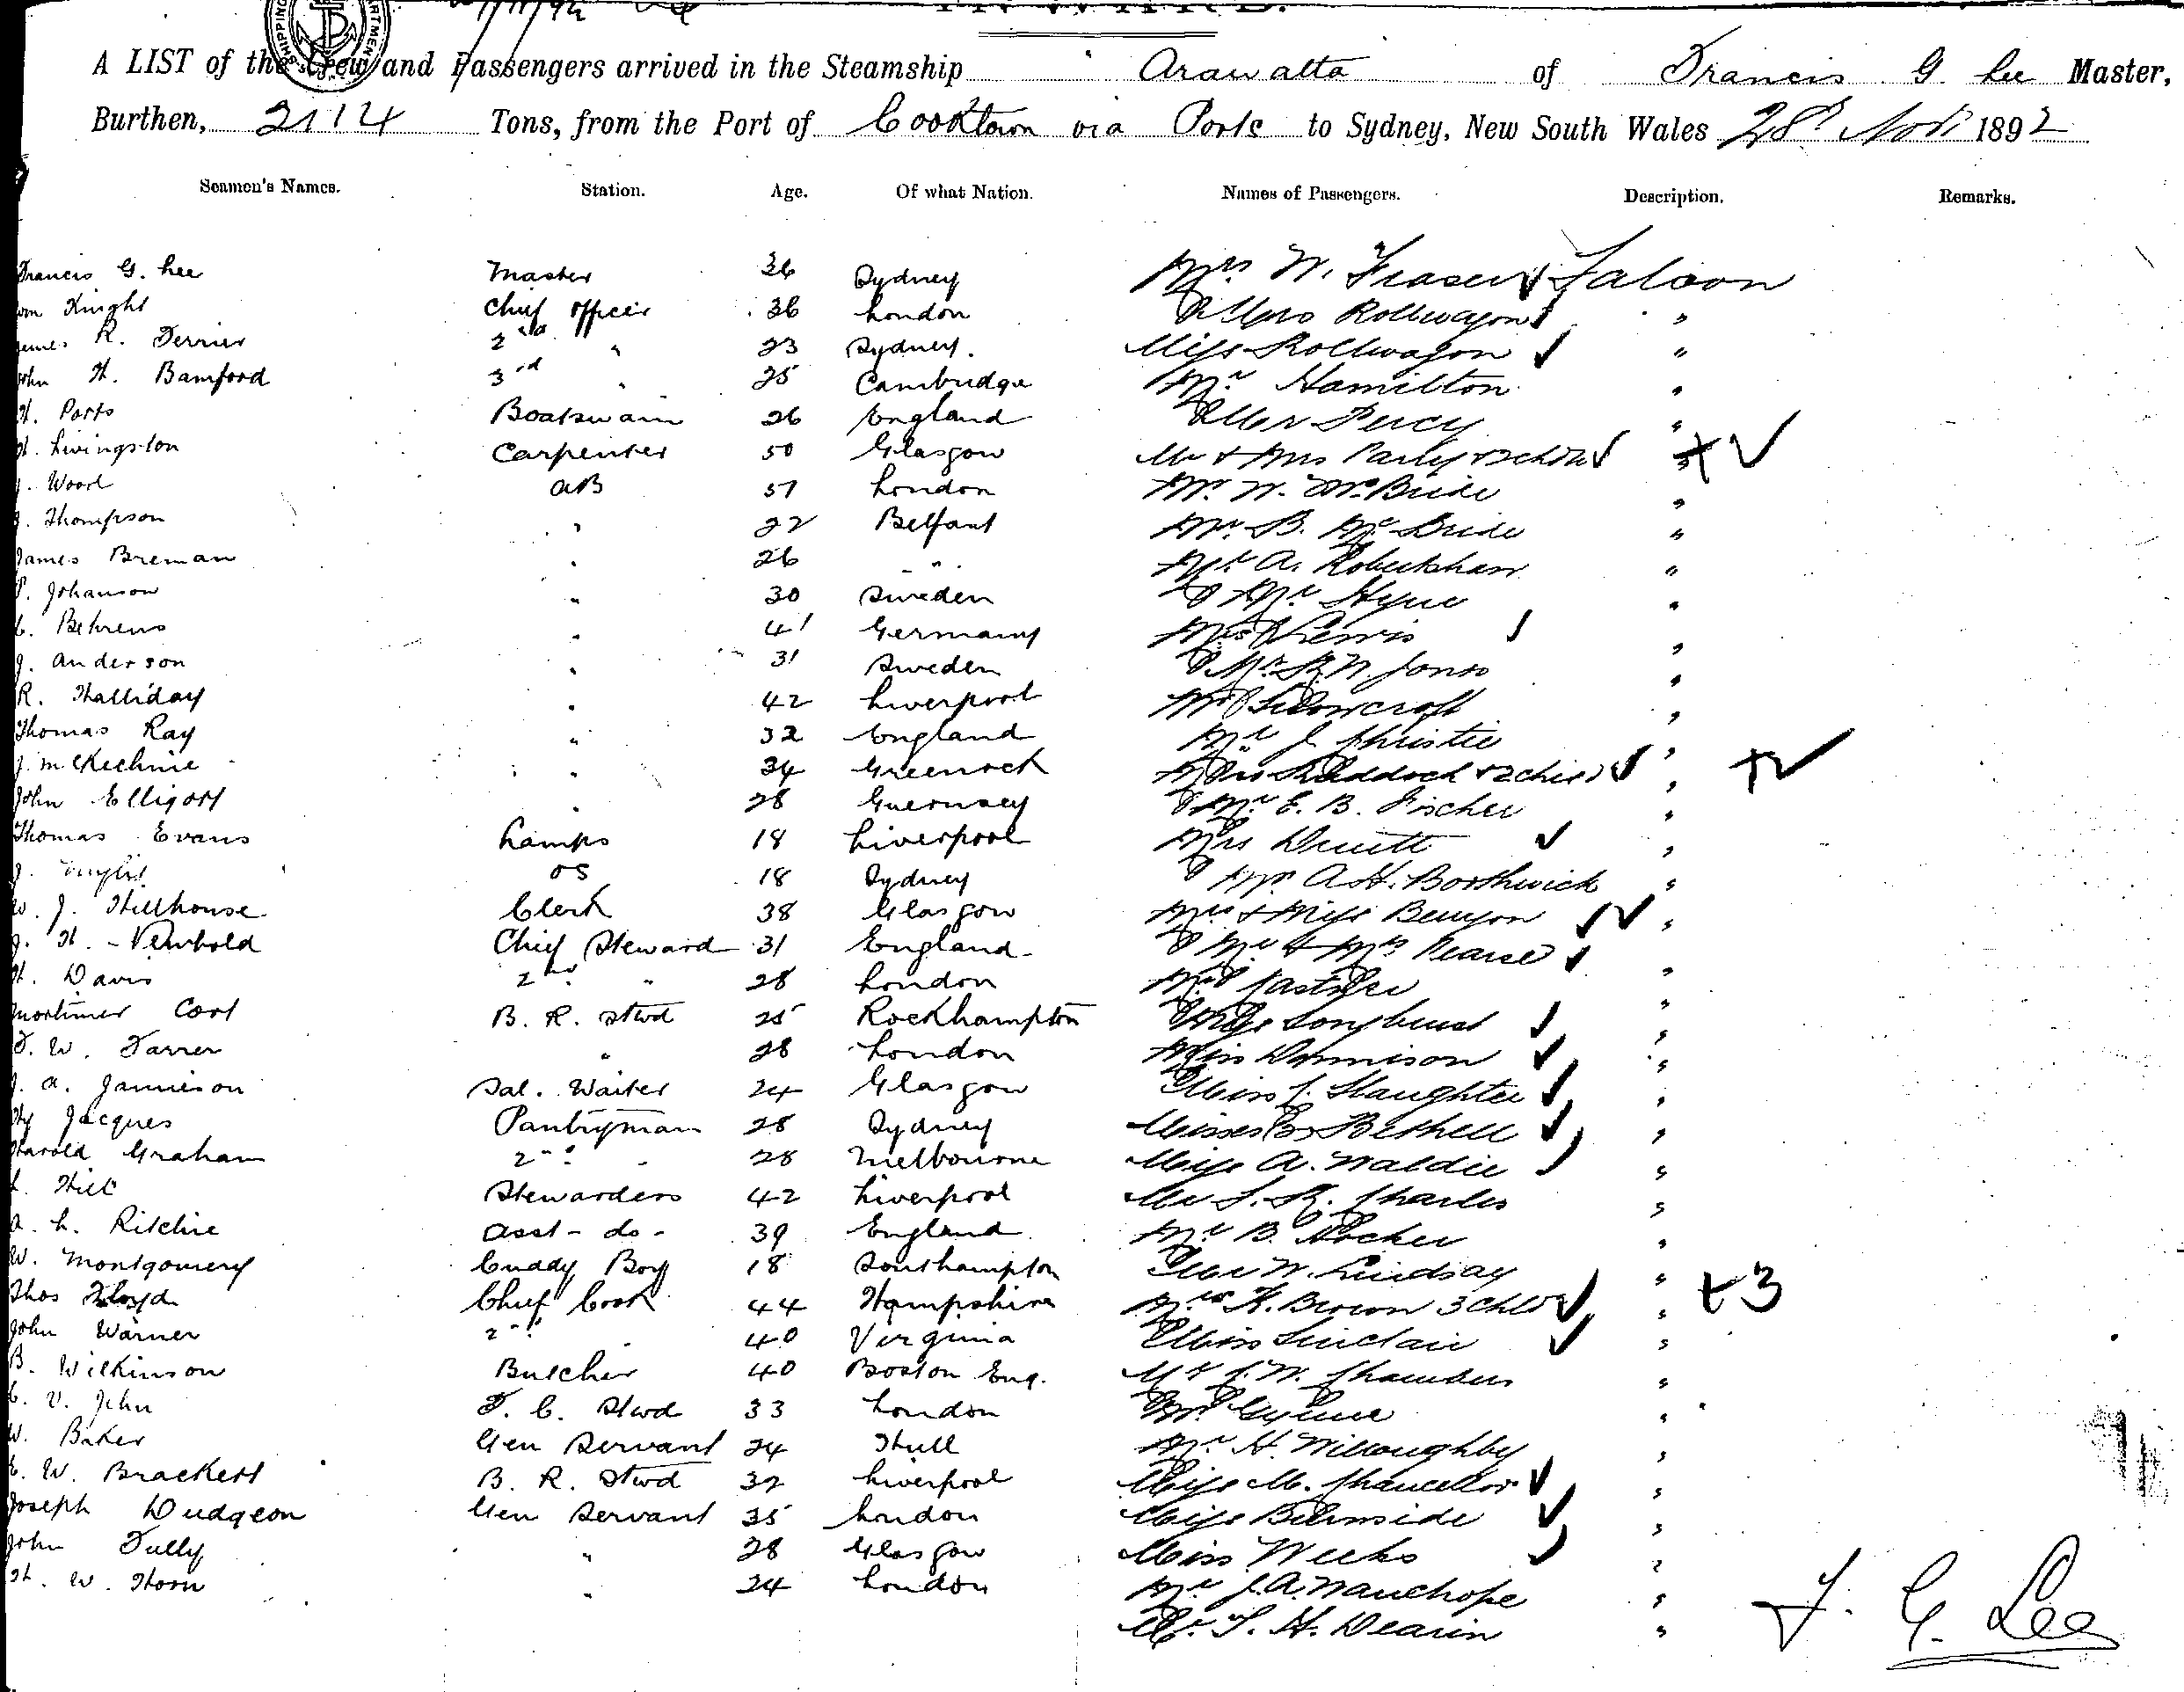 INWARD.
A LIST of the Crew and Passengers arrived in the Steamship Arawatta of Francis G. Lee Master,
Burthen, 2114 Tons, from the Port of Cooktown via Ports to Sydney, New South Wales 28th Nov. 1892
Seamen's Names. Station. Age. Of what Nation. Names of Passengers. Description. Remarks.
Francis G. Lee Master 36 Sydney Mrs W. Fraser Saloon
Wm Knight Chief Officer 36 London Mrs Rollwagon "
James R. Ferrier 2nd " 23 Sydney. Miss Rollwagon "
John H. Bamford 3rd " 25 Cambridge Mr Hamilton "
H. Ports Boatswain 26 England Percy "
H. Livingston Carpenter 50 Glasgow Mr & Mrs "
J. Wood AB 51 London Mr. W. McBride "
J. Thompson " 22 Belfast Mr. B. McBride "
James Breman " 26 " Mr A. Robertshaw "
P. Johanson " 30 Sweden Mr Hyne "
C. Behrens " 41 Germany "
J. Anderson " 31 Sweden Mr. Jones "
R. Halliday " 42 Liverpool "
Thomas Ray " 32 England Mr J. Christie "
J. McKechnie " 34 Greenock Mrs & 2 "
John Elligott " 28 Guernsey Mr E. B. Fischer "
Thomas Evans Lamps 18 Liverpool Mrs Druitt "
J. OS 18 Sydney Mr A. H. Borthwick "
W. J. Hillhouse Clerk 38 Glasgow Mrs & Miss Benyon "
J. H. Newbold Chief Steward 31 England Mr & Mrs Pearse "
H. Davis 2nd " 28 London "
Mortimer Cort B. R. Stwd 25 Rockhampton Miss Longhurst "
F. W. Farrer " 28 London Miss Dennison "
J. A. Jamieson Sal. Waiter 24 Glasgow Miss Slaughter "
Hy Jacques Pantryman 28 Sydney Misses Bethell "
Harold Graham 2nd " 28 Melbourne Miss A. Waldie "
L. Hill Stewardess 42 Liverpool Mr S. R. Charles "
A. L. Ritchie Asst - do - 39 England Mr B. "
W. Montgomery Cuddy Boy 18 Southampton W. Lindsay "
Thos Floyd Chief Cook 44 Hampshire Mrs K. Brown 3 Chldn " +3
John Warner 2nd " 40 Virginia Miss Sinclair "
B. Wilkinson Butcher 40 Boston Eng. Mr J. W. Chambers "
C. V. John F. C. Stwd 33 London "
W. Baker Gen Servant 24 Hull Mr H. Willoughby "
E. W. Brackett B. R. Stwd 32 Liverpool Miss M. Chancellor "
Joseph Dudgeon Gen Servant 35 London Miss Burnside "
John Tully " 28 Glasgow Miss Weeks "
H. W. Horn " 24 London Mr J. A. Wauchope "
Mr. T. H. Dearin "
F. G. Lee